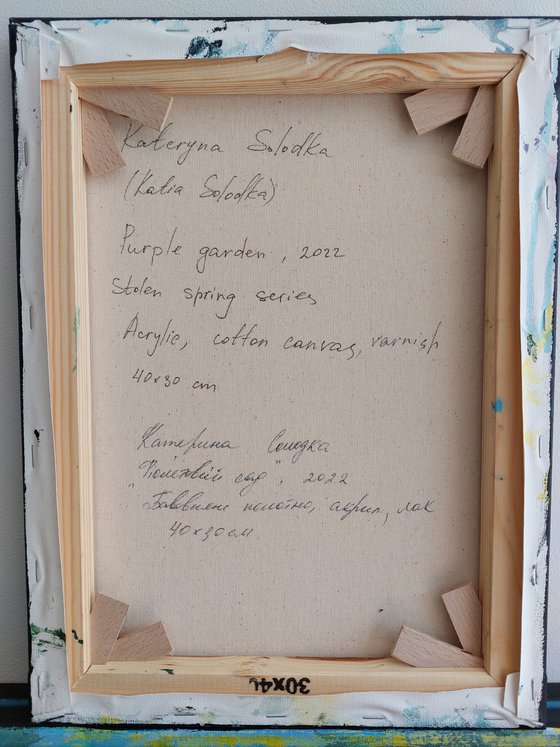 Kateryna Solodka
(Katia Solodka)
Purple garden, 2022
Stolen spring series
Acrylic, cotton canvas, varnish
40x30 cm
Катерина Солодка
"Фіолетовий сад", 2022
Бавовняне полотно, акрил, лак
40x30 см
30x4